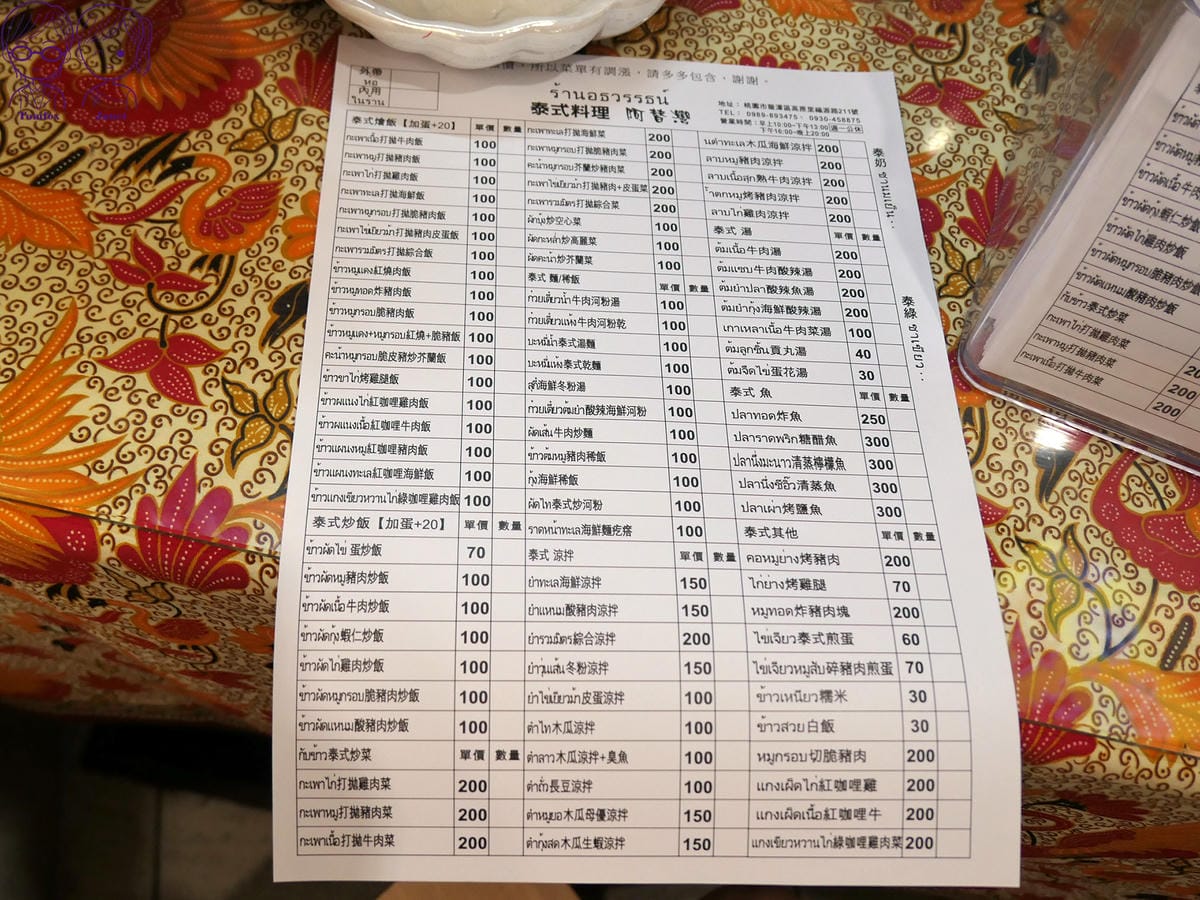 價，所以菜單有調漲，請多多包含，謝謝。
外帶
ห่อ
內用
ในร้าน
ร้านอธวรรธน์
泰式料理
地址：桃園市龍潭區高原里福源路211號
TEL： 0989-893475、0930-458875
營業時間：早上10:00~下午13:00 週一公休
下午16:00~晚上20:00
泰式燴飯【加蛋+20】 單價 數量
กะเพาเนื้อ打拋牛肉飯 100
กะเพาหมู打拋豬肉飯 100
กะเพาไก่打拋雞肉飯 100
กะเพาทะเล打拋海鮮飯 100
กะเพาหมูกรอบ打拋脆豬肉飯 100
กะเพาไข่เยี่ยวม้า打拋豬肉皮蛋飯 100
กะเพารวมมิตร打拋綜合飯 100
ข้าวหมูแดง紅燒肉飯 100
ข้าวหมูทอด炸豬肉飯 100
ข้าวหมูกรอบ脆豬肉飯 100
ข้าวหมูแดง+หมูกรอบ紅燒+脆豬飯 100
คะน้าหมูกรอบ脆皮豬炒芥蘭飯 100
ข้าวขาไก่烤雞腿飯 100
ข้าวแพนงไก่紅咖哩雞肉飯 100
ข้าวแพนงเนื้อ紅咖哩牛肉飯 100
ข้าวแพนงหมู紅咖哩豬肉飯 100
ข้าวแพนงทะเล紅咖哩海鮮飯 100
ข้าวแกงเขียวหวานไก่綠咖哩雞肉飯 100
泰式炒飯【加蛋+20】 單價 數量
ข้าวผัดไข่ 蛋炒飯 70
ข้าวผัดหมู豬肉炒飯 100
ข้าวผัดเนื้อ牛肉炒飯 100
ข้าวผัดกุ้ง蝦仁炒飯 100
ข้าวผัดไก่雞肉炒飯 100
ข้าวผัดหมูกรอบ脆豬肉炒飯 100
ข้าวผัดแหนม酸豬肉炒飯 100
กับข้าว泰式炒菜 單價 數量
กะเพาไก่打拋雞肉菜 200
กะเพาหมู打拋豬肉菜 200
กะเพาเนื้อ打拋牛肉菜 200
กะเพาทะเล打拋海鮮菜 200
กะเพาหมูกรอบ打拋脆豬肉菜 200
คะน้าหมูกรอบ芥蘭炒脆豬肉菜 200
กะเพาไข่เยี่ยวม้า打拋豬肉+皮蛋菜 200
กะเพารวมมิตร打拋綜合菜 200
ผักบุ้ง炒空心菜 100
ผัดกะหล่ำ炒高麗菜 100
ผัดคะน้า炒芥蘭菜 100
泰式 麵/稀飯 單價 數量
ก๋วยเตี๋ยวน้ำ牛肉河粉湯 100
ก๋วยเตี๋ยวแห้ง牛肉河粉乾 100
บะหมี่น้ำ泰式湯麵 100
บะหมี่แห้ง泰式乾麵 100
สุกี้海鮮冬粉湯 100
ก๋วยเตี๋ยวต้มยำ酸辣海鮮河粉 100
ผัดเส้น牛肉炒麵 100
ข้าวต้มหมู豬肉稀飯 100
กุ้ง海鮮稀飯 100
ผัดไท泰式炒河粉 100
ราดหน้าทะเล海鮮麵疙瘩 100
泰式 涼拌 單價 數量
ยำทะเล海鮮涼拌 150
ยำแหนม酸豬肉涼拌 150
ยำรวมมิตร綜合涼拌 200
ยำวุ้นเส้น冬粉涼拌 150
ยำไข่เยี่ยวม้า皮蛋涼拌 100
ตำไท木瓜涼拌 100
ตำลาว木瓜涼拌+臭魚 100
ตำถั่ว長豆涼拌 100
ตำหมูยอ木瓜母優涼拌 150
ตำกุ้งสด木瓜生蝦涼拌 150
นตำทะเล木瓜海鮮涼拌 200
ลาบหมู豬肉涼拌 200
ลาบเนื้อสุก熟牛肉涼拌 200
น้ำตกหมู烤豬肉涼拌 200
ลาบไก่雞肉涼拌 200
泰式 湯 單價 數量
ต้มเนื้อ牛肉湯 200
ต้มแซบ牛肉酸辣湯 200
ต้มยำปลา酸辣魚湯 200
ต้มยำกุ้ง海鮮酸辣湯 200
เกาเหลาเนื้อ牛肉菜湯 100
ต้มลูกชิ้น貢丸湯 40
ต้มจืดไข่蛋花湯 30
泰式 魚 單價 數量
ปลาทอด炸魚 250
ปลาราดพริก糖醋魚 300
ปลานึ่งมะนาว清蒸檸檬魚 300
ปลานึ่งซีอิ๊ว清蒸魚 300
ปลาเผา烤鹽魚 300
泰式其他 單價 數量
คอหมูย่าง烤豬肉 200
ไก่ย่าง烤雞腿 70
หมูทอด炸豬肉塊 200
ไข่เจียว泰式煎蛋 60
ไข่เจียวหมูสับ碎豬肉煎蛋 70
ข้าวเหนียว糯米 30
ข้าวสวย白飯 30
หมูกรอบ切脆豬肉 200
แกงเผ็ดไก่紅咖哩雞 200
แกงเผ็ดเนื้อ紅咖哩牛 200
แกงเขียวหวานไก่綠咖哩雞肉菜 200
泰奶 ชานมเย็น
泰綠 ชาเขียว
ข้าวผัดหมู
ข้าวผัดเนื้อ牛
ข้าวผัดกุ้ง蝦仁炒飯
ข้าวผัดไก่雞肉炒飯
ข้าวผัดหมูกรอบ脆豬肉炒飯
ข้าวผัดแหนม酸豬肉炒飯
กับข้าว泰式炒菜
กะเพาไก่打拋雞肉菜
กะเพาหมู打拋豬肉菜
กะเพาเนื้อ打拋牛肉菜
200
200